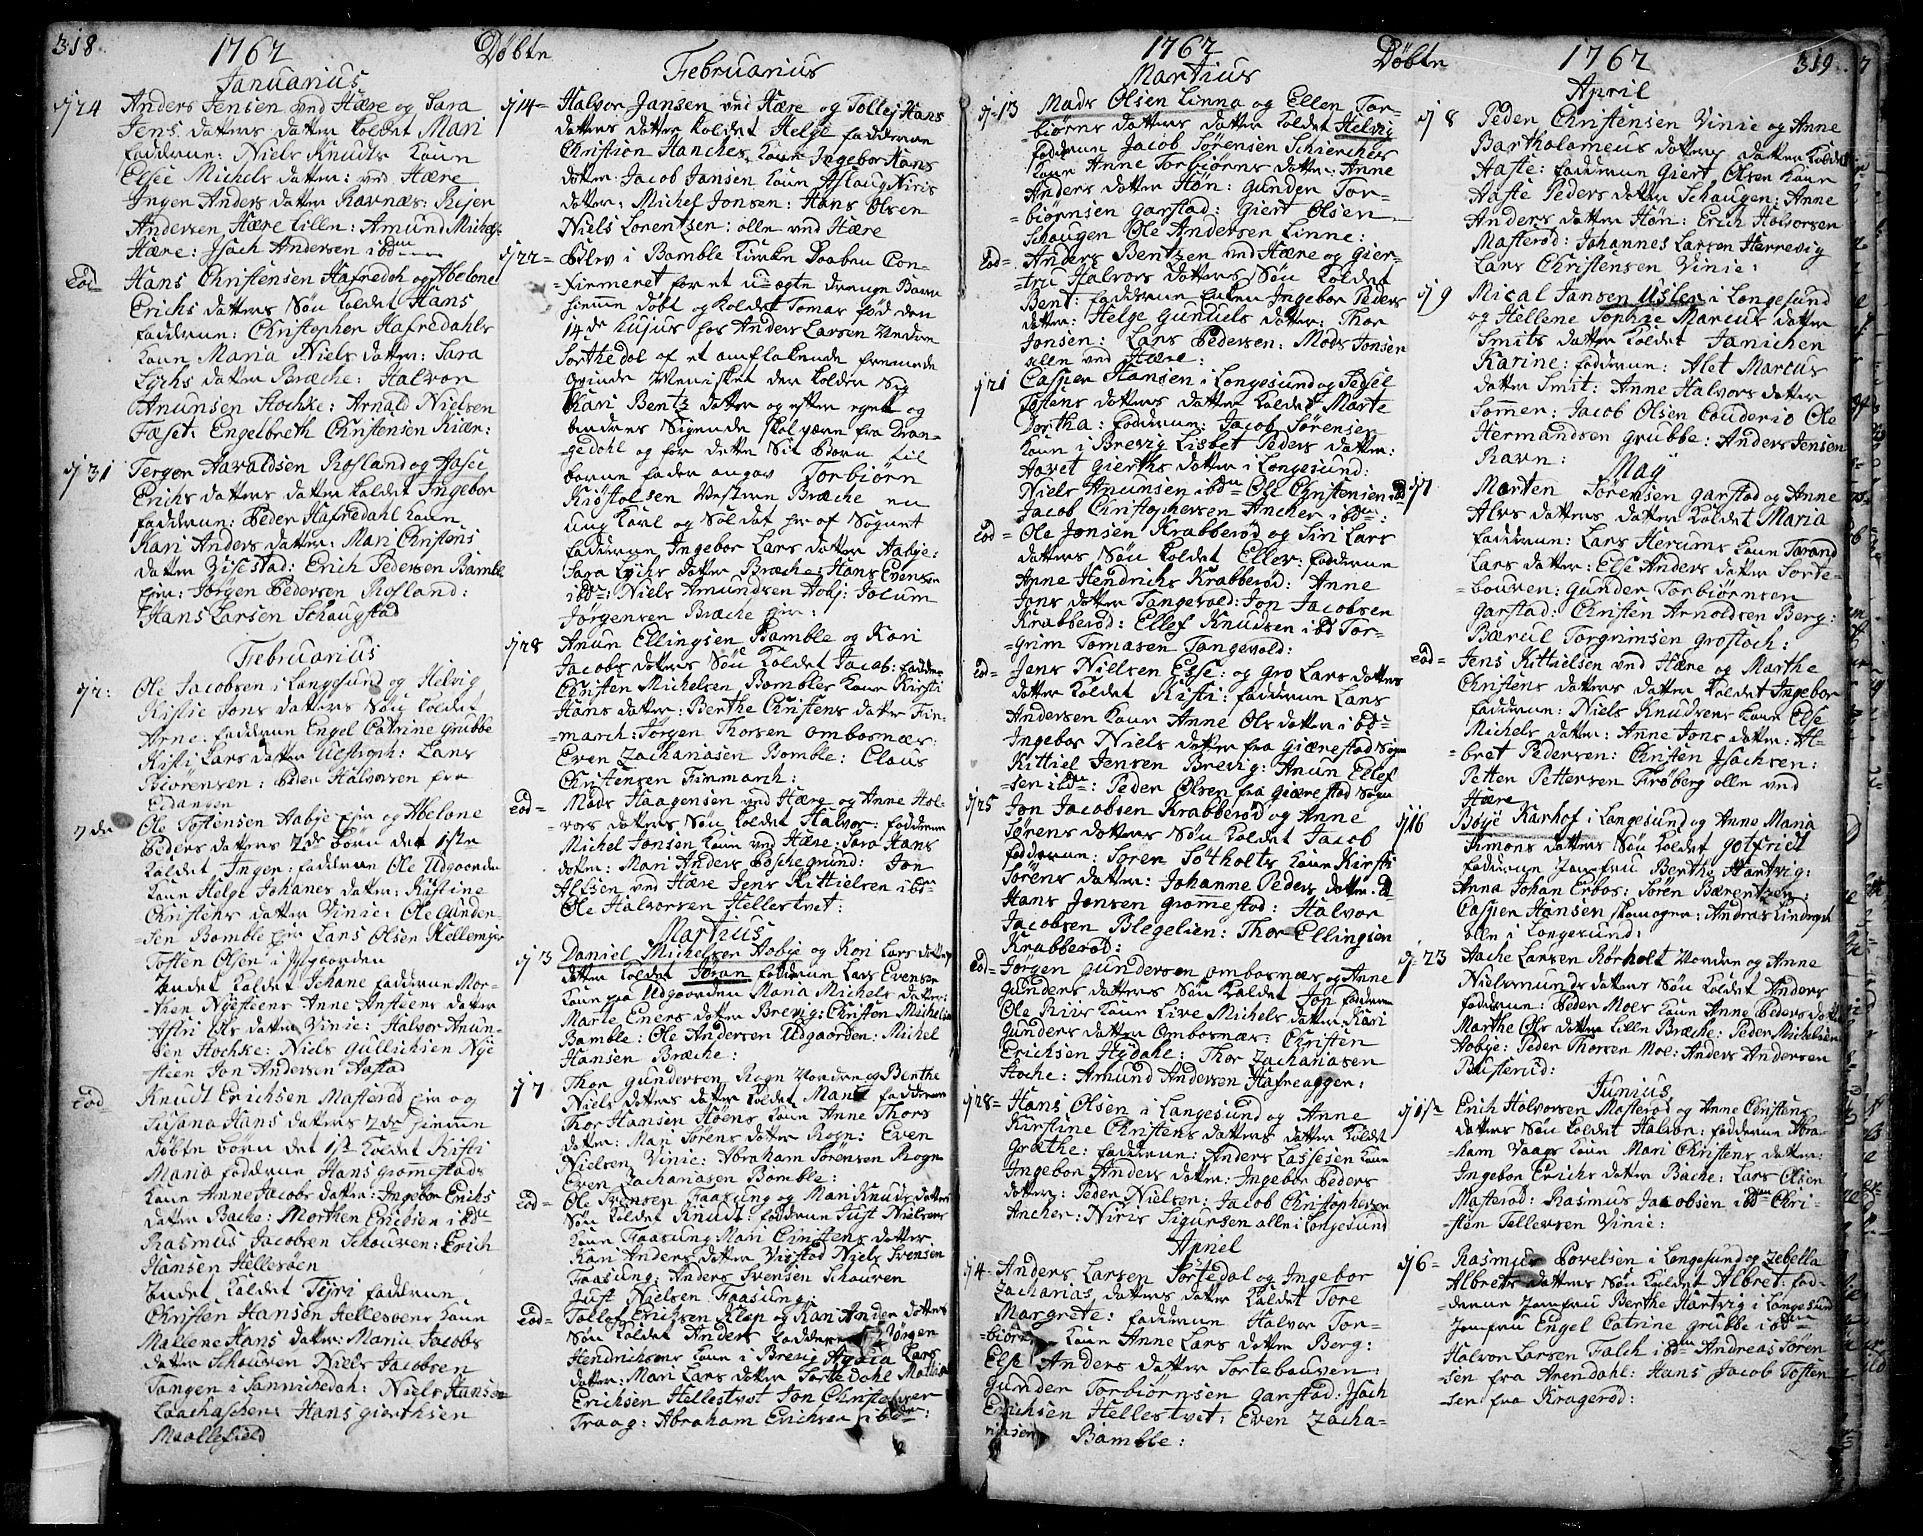 318.
1762 Döbte
Januarius
d/24 Anders Jensen ved Hære og Sara
Jens datters datter koldet Mari
fadderne: Niels Knudts Kone
Elsee Michels datter: ved Hære
Ingen Anders datter Ravnæs: Rejer
Andersen Hære lille: Amund Michels:
Hære: Isach Andersen ibdm
Eod= Hans Christensen Hafredah og Abelone
Erichs datters Søn koldet Hans
fadderne: Christopher Hafredahls
kone Maria Niels datter: Sara
Lychs datter Bræche: Halvor
Anunsen Stochke: Arnald Nielsen
Fæset: Engelbreth Christensen Kiær:
d/31 Terger Haraldsen Rosland og Aasee
Erichs datters datter koldet Ingebor
fadderne: Peder Hafredahl kone
Kari Anders datter: Mari Christens
datter Visestad: Erich Pedersen Bamble
Eier: Jørgen Pedersen Rosland:
Hans Larsen Schougstad
Februarius
d/2: Ole Jacobsen i Langesund og Helvig
Kistie Jons datters Søn koldet
Arne: fadderne Engel Catrine Grubbe
Kisti Lars datter: Lars
Biörensen: Peder Halvorsen fra
Eidangen
7de Ole Tostensen Aabye Eier og Abelone
Peders datters 2de børn det 1ste
koldet Ingen: fadderne Ole Udgaarden
kone Helge Johanes datter: Kistine
Christens datter Vinie: Ole Gunder
=sen Bamble Eier Lars Olsen Hellemyr
Tosten Olsen i Udgaarden
andet koldet Jehane fadderne Mor-
then Nysteens Anne Anstens datter
Astri Ols datter Vinie: Halvor Anun-
sen Stochke: Niels Gullichsen Nye
=steen Jon Andersen Aastad
Eod= Knudt Erichsen Masterød Eier og
Susana Hans datters 2de hiemme
Döbte børn det 1ste koldet Kisti
Maria fadderne Hans Grømmestads
kone Anne Jacobs datter: Ingebor Erichs
datter Bache: Morthen Erichsen ibdm
Rasmus Jacobsen Schouven: Erich
Hansen Hellesøen
Andet koldet Tijri fadderne
Christen Hansen Hellesøens kone
Mallene Hans datter: Maria Jacobs
datter Schouven Niels Jacobsen
Tangen i Sannichedah: Niels Hansen
Laachaschen: Hans Gierthsen
Maallefield
Februarius
d/14= Halvor Jansen ved Hære og Tollej Hans
datters datter koldet Helge fadderne
Christian Hanches kone Ingebor Hans
datter: Jacob Jansen kone Aslaug Niris
datter: Michel Jonsen: Hans Olsen
Niels Lorentzen: alle ved Hære
d/22= Blev i Bamble Kirke Daaben Con-
=firmeret for et u=ægte drenge Barn
hiemme döbt og koldet Tomas fød den
14de hujus hos Anders Larsen Nedre
Sorthedal af et omflakende fremmede
Qvinde Mennisket der kolder Sig
Kari Bentz datter og efter egne og
andres Sigende skal være fra Dran-
gedahl og for dette Sit Born til
barne fader angav Torbiørn
Kistolsen Vestere Bræche en
ung Karl og Soldat her af Sognet
fadderne Ingebor Lars datter Aabye:
Sara Lychs datter Bræche: Hans Evensen
ibdm: Niels Amundsen Aobj: Jocum
Jørgensen Bræche Eier:
d/28 Anun Ellingsen Bamble og Kari
Jacobs datters Søn koldet Jacob: fadder
Christen Michelsen Bambles kone Kirsti
Hans datter: Berthe Christens datter Fin-
=march: Jørgen Thorsen Ombosnæs:
Even Zachariasen Bamble: Claus
Christensen Finmarch:
Eod= Mads Haagensen ved Hære og Anne Hal-
vors datters Søn koldet Halvor: fadderne
Michel Jonsen kone ved Hære: Sara Hans
datter: Mari Anders Boschegrund: Jon
Alfsen ved Hære Jens Kittielsen ibdm
Ole Halvorsen Hellestvet:
Martius
d/3 Daniel Michelsen Aabye og Kari Lars datters
datter koldet Joran fadderne Lars Evensen
kone paa Udgaarden Maria Michels datter:
Marte Eners datter Brevig: Christen Michelsen
Bamble: Ole Andersen Udgaarden: Michel
Hansen Bræche:
d/7 Thor Gundersen Rogn Nordre og Berthe
Niels datters datter koldet Mari fadderne
Thor Hansen Höens kone Anne Thors
datter: Mari Sörens datter Rogn: Even
Nielsen Vinie: Abraham Sørensen Rogn
Even Zachariasen Bamble:
Eod= Ole Svensen Faasung og Mari Knuds datters
Søn koldet Knudt: fadderne Just Nielsens
kone Faasung Mari Christens datter
Kari Anders datter Vistad Niels Svensen
Faasung: Anders Svensen Schouven
Just Nielsen Faasung:
Eod= Tollof Erichsen Klep og Kari Anders datters
Søn koldet Anders fadderne Jörgen
Hendrichsens kone i Brevig Lars
datter: Mari Lars datter Sortedahl Mathis
Erichsen Hellestvet Jon Christensen
Traag: Abraham Erichsen ibdm:
1762 Döbte
Martius
d/13 Mads Olsen Linna og Ellen Tor-
biørns datters datter koldet Helvig
fadderne Jacob Sørensen Schierchers
kone Anne Torbiørns datter: Anne
Anders datter Høn: Gunder Tor-
=biørnsen Garstad: Giert Olsen
Schougen Ole Andersen Linne:
Eod= Anders Bentzen ved Hære og Gier-
tru Halvors datters Søn koldet
Bent: fadderne Enken Ingebor Peders
datter: Helge Gundels datter: Thor
Jonsen: Lars Pedersen: Mads Jonsen
alle ved Hære:
d/21 Casper Hansen i Langesund og Segel
Tostens datters datter koldet Marte
Dortha: fadderne: Jacob Sørensen
kone i Brevig Lisbet Peders datter:
Aaret Gierths datter i Langesund:
Niels Anunsen ibdm Ole Christensen ibd
Jacob Christophersen Ancher ibdm:
Eod= Ole Jonsen Krabberød og Siri Lars
datters Søn koldet Ellev: fadderne
Anne Hendrichs Krabberød: Anne
Jons datter Tangevold: Jon Jacobsen
Krabberød: Ellef Knudsen ibd Tor-
=grim Tomasen Tangevold:
Eod= Jans Nielsen Esse: og Gro Lars datters
datter koldet Kisti: fadderne Lars
Andersen kone Anne Ols datter ibdm
Ingebor Niels datter fra Giærestad Sogn
Kittiel Jensen Brevig: Anun Ellef
sen ibdm: Peder Olsen fra Giærestad Sogn
d/25 Jon Jacobsen Krabberød og Anne
Sørens datters Søn koldet Jacob
fadderne: Soren Søtholts kone Kirsti
Sørens datter: Johanne Peders datter
Hans Jonsen Grømestod: Halvor
Jacobsen Blegelien: Thor Ellingsen
Krabberød:
Eod= Jörgen Gundersen Ombosnæs og Anne
Gunders datters Søn koldet Jon fadderne
Ole Riis kone Live Michels datter: Kari
Gunders datter Ombosnæs: Christen
Erichsen Hydahl: Thor Zachariasen
Stoche: Amund Andersen Hafreagger:
d/28= Hans Olsen i Langesund og Anne
Kirstine Christens datters datter koldet
Grathe: fadderne: Anders Lassesen kone
Ingebor Anders datter: Ingebor Peders
datter: Peder Nielsen: Jacob Christophersen
Ancher: Niris Sigursen alle i Langesund
Apriel
d/4 Anders Larsen Sortedal og Ingebor
Zacharias datters datter koldet Tore
Margrete: fadderne Halvor Tor-
=biörn kone Anne Lars datter Berg:
Else Anders datter Sortebouven:
Gunder Torbiörnsen Garstad: Isach
Erichsen Hellestvet: Even Zacha-
riasen Bamble:
1762 319.
April
d/8 Peder Christensen Vinie og Anne
Bartholomeus datters datter koldet
Aaste: fadderne Giert Olsen kone
Aaste Peders datter Schaugen: Anne
Anders datter Høn: Erich Halvorsen
Masterød: Johannes Larsen Herrevig
Lars Christensen Vinie:
d/9 Mical Jansen Usler i Langesund
og Hellene Sophie Marcus datter
Smits datter koldet Janichen
Karine: fadderne: Alet Marcus
datter Smit: Anne Halvors datter
Sommer: Jacob Olsen Couderio Ole
Hermandsen Grubbe: Anders Jensen
Ravn:
Maij
d/7 Marten Sörensen Garstad og Anne
Alvs datters datter koldet Maria
fadderne: Lars Herums kone Tarand
Lars datter: Else Anders datter Sorte-
bouven: Gunder Torbiörnsen
Garstad: Christen Arnoldsen Berg:
Bærul Torgrimsen Grostoch:
Eod= Jens Kittielsen ved Hære og Marthe
Christens datters datter koldet Ingebor
fadderne: Niels Knudsens kone Else
Michels datter: Anne Jons datter: Al-
=bret Pedersen: Christen Isachsen:
Petter Pettersen Frøberg alle ved
Hære
d/16 Böije Karhof i Langesund og Anne Maria
Simons datters Søn koldet Gotfriet
fadderne Jomfru Berthe Hartvig:
Anna Johan Erbos: Søren Bærentzen:
Casper Hansen skomager: Andreas Lindequist
alle i Langesund:
d/23 Aache Larsen Rörholt Nordre og Anne
Nielsmunds datters Søn koldet Anders
fadderne: Peder Moes kone Anne Peders datter
Marthe Ols datter Lille Bræche: Peder Michelsen
Aobye: Peder Thorsen Moe: Anders Andersen
Busterud:
Junius
d/1ste Erich Halvorsen Masterød og Anne Christens
datters Søn koldet Halvor: fadderne Abra-
=ham Vaags kone Mari Christens datter:
Ingebor Erichs datter Bache: Lars Olsen
Masterød: Rasmus Jacobsen ibdm Chri-
=sten Tellefsen Vinie:
d/6= Rasmus Povelsen i Langesund og Zebella
Albrets datters Søn koldet Albret: fad-
=derne Jomfru Berthe Hartvig i Langesund
Jomfru Engel Catrine Grubbe ibdm
Halvor Larsen Falch ibdm Andreas Sören
sen fra Arendahl: Hans Jacob Tosten
sen fra Kragerød: